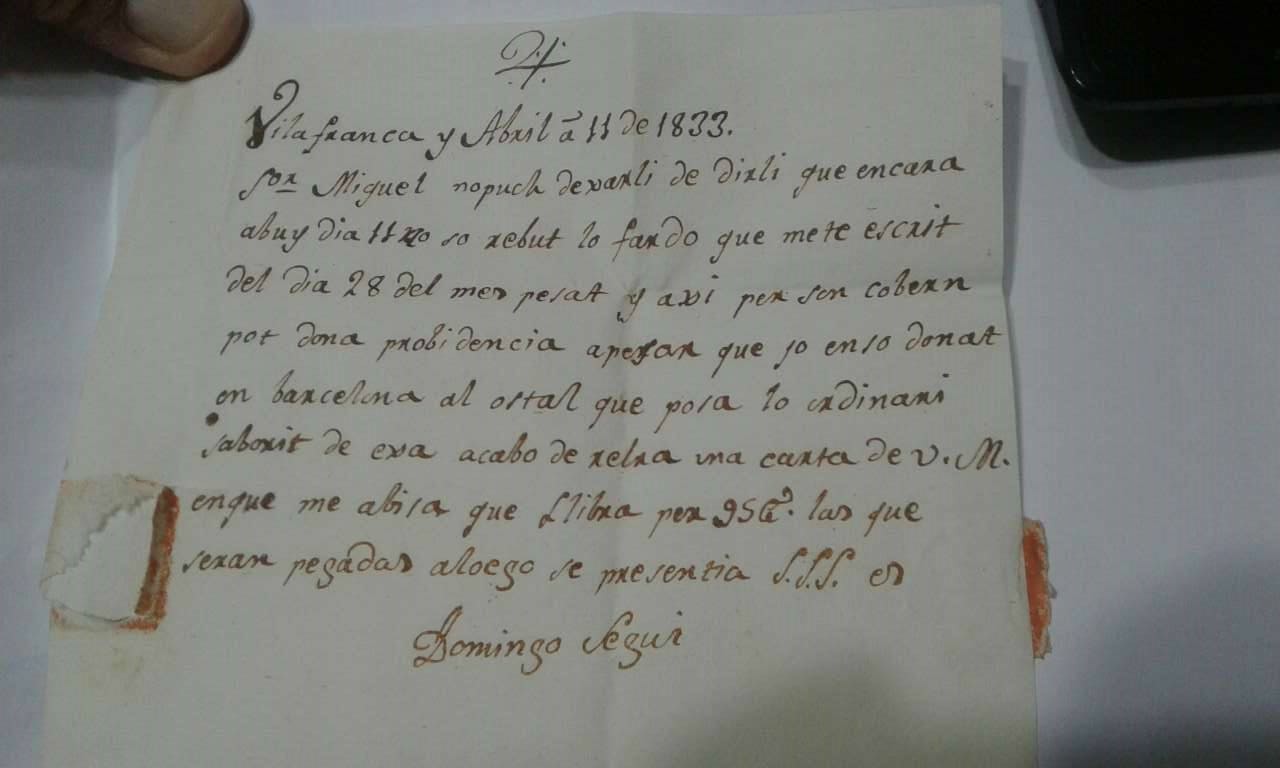 Vilafranca y Abril â 11 de 1833.
Sor Miguel nopuch dexarli de dirli que encara
abuy dia 11 no so rebut lo fardo que mete escrit
del dia 28 del mes pesat y axi per son cobern
pot dona probidencia apesar que jo enso donat
en barcelona al ostal que posa lo ordinari
saborit de exa acabo de rebra una carta de V. M.
enque me abisa que Llibra per las que
seran pegadas aloego se presentia S.S.S. es
Domingo Segui